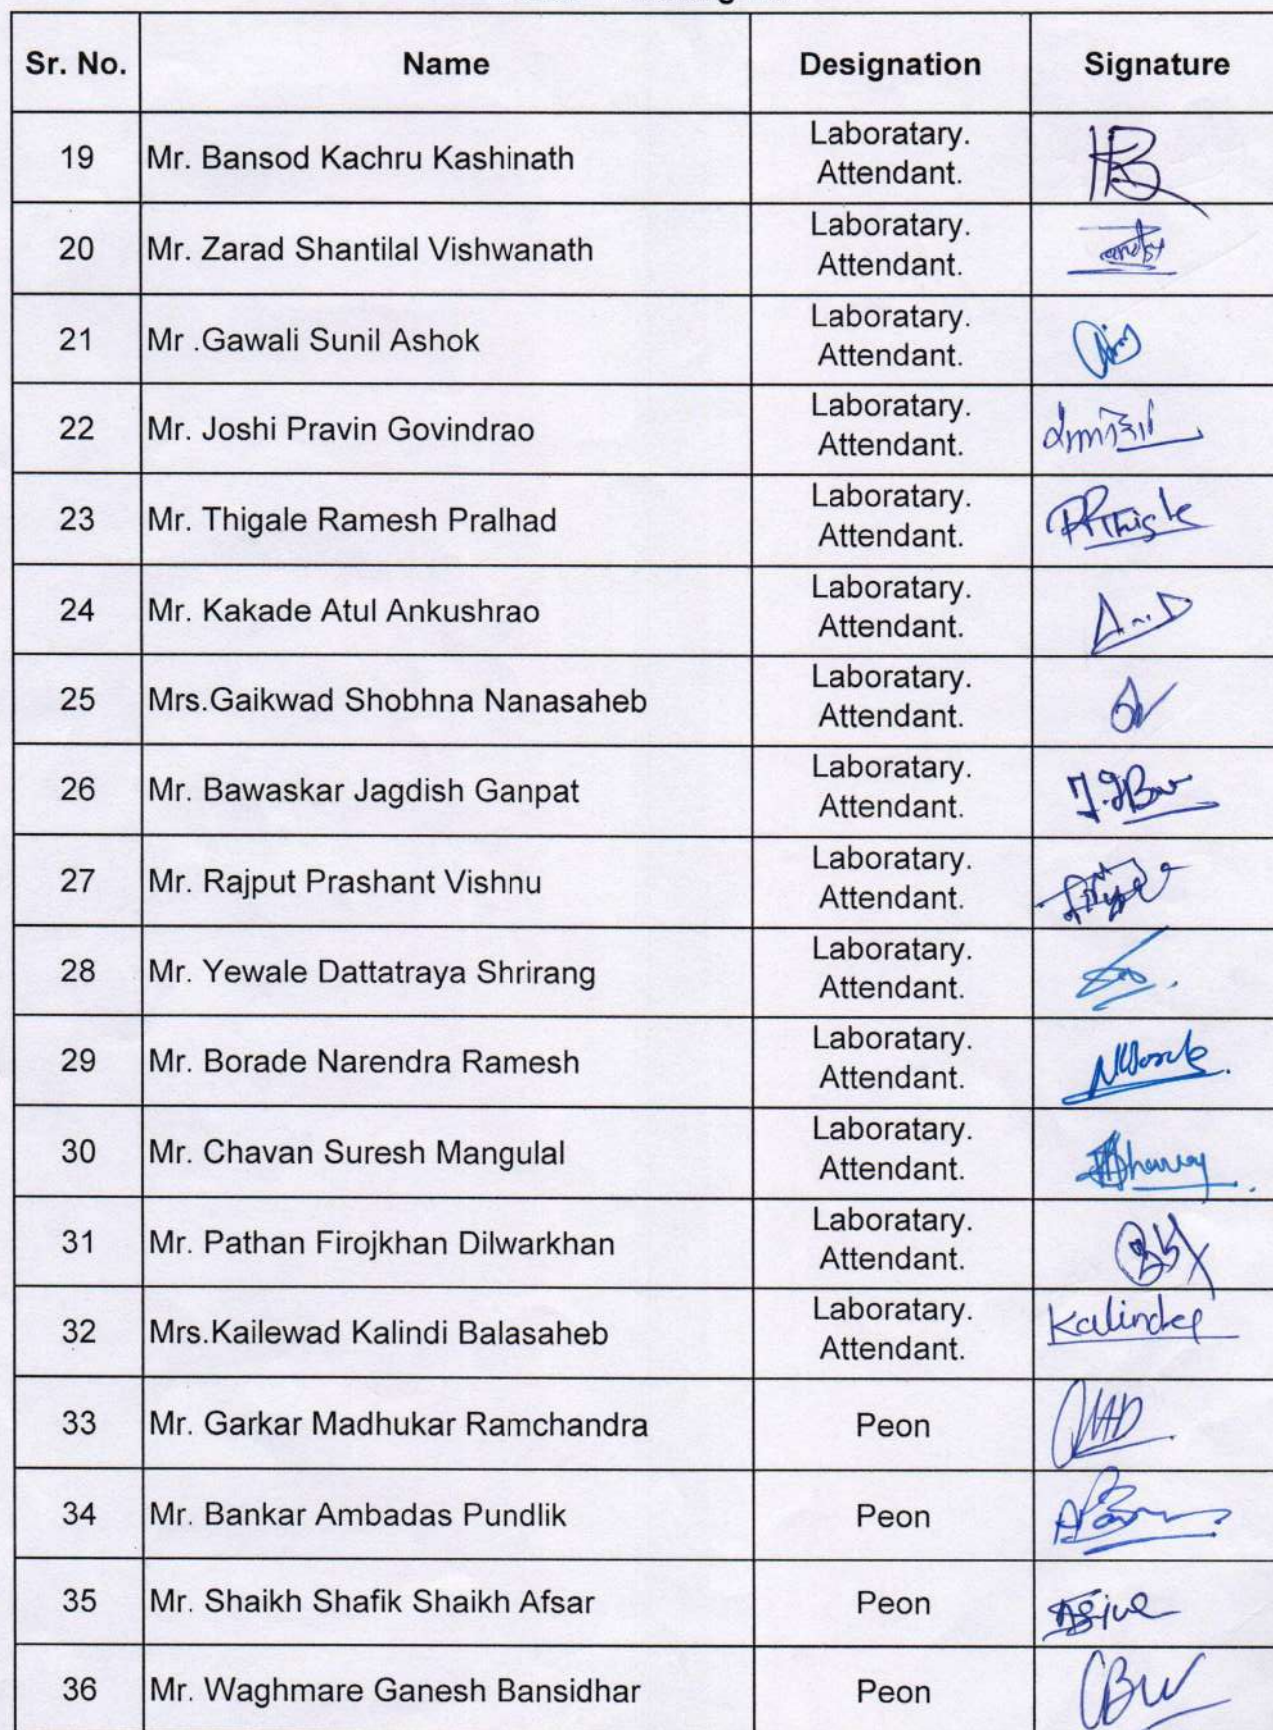 Sr. No. Name Designation Signature
19 Mr. Bansod Kachru Kashinath Laboratary.
Attendant.
20 Mr. Zarad Shantilal Vishwanath Laboratary.
Attendant.
21 Mr .Gawali Sunil Ashok Laboratary.
Attendant.
22 Mr. Joshi Pravin Govindrao Laboratary.
Attendant.
23 Mr. Thigale Ramesh Pralhad Laboratary.
Attendant.
24 Mr. Kakade Atul Ankushrao Laboratary.
Attendant.
25 Mrs.Gaikwad Shobhna Nanasaheb Laboratary.
Attendant.
26 Mr. Bawaskar Jagdish Ganpat Laboratary.
Attendant.
27 Mr. Rajput Prashant Vishnu Laboratary.
Attendant.
28 Mr. Yewale Dattatraya Shrirang Laboratary.
Attendant.
29 Mr. Borade Narendra Ramesh Laboratary.
Attendant.
30 Mr. Chavan Suresh Mangulal Laboratary.
Attendant.
31 Mr. Pathan Firojkhan Dilwarkhan Laboratary.
Attendant.
32 Mrs.Kailewad Kalindi Balasaheb Laboratary.
Attendant.
33 Mr. Garkar Madhukar Ramchandra Peon
34 Mr. Bankar Ambadas Pundlik Peon
35 Mr. Shaikh Shafik Shaikh Afsar Peon
36 Mr. Waghmare Ganesh Bansidhar Peon